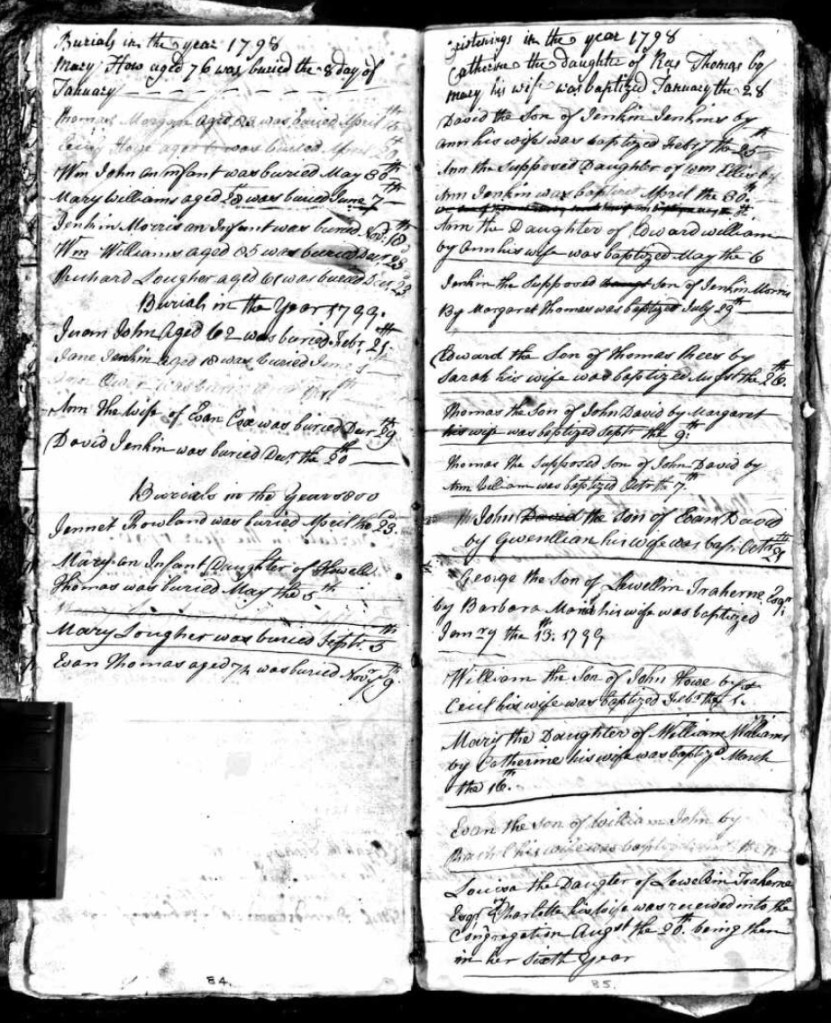 Burials in the year 1798
Mary How aged 76 was buried the 8 day of
January
Thomas Morgan aged was buried April
aged was buried
Wm John an Infant was buried May 30th
Mary Williams aged 28 was buried June 7th
Jenkin Morris an Infant was buried Novr 18th
Wm Williams aged 85 was buried Decr 23d
Richard Lougher aged 61 was buried Decr 23
Burials in the Year 1799.
John Aged 62 was buried Febr. 21st.
Jane Jenkin aged 18 was buried June
was buried
Ann the wife of Evan Cox was buried Decr 29th
David Jenkin was buried Decr. the 20th
Burials in the Year 1800
Jennet Rowland was buried April the 23d.
Mary an Infant Daughter of Howell
Thomas was buried May the 5th
Mary Lougher was buried Septr. 5th
Evan Thomas aged 74 was buried Novr 9th.
84.
istenings in the year 1798
Catherine the daughter of Rees Thomas by
Mary his wife was baptized January the 28
David the Son of Jenkin Jenkins by
Ann his wife was baptized Feb the 25th
Ann the Supposed Daughter of Wm Elles by
Ann Jenkin was baptized April the 30th.
Ann the Daughter of Edward William
by Ann his wife was baptized May the 6
Jenkin the Supposed Son of Jenkin Morris
By Margaret Thomas was baptized July 29th
Edward the Son of Thomas Rees by
Sarah his wife was baptized August the 26th.
Thomas the Son of John David by Margaret
his wife was baptized Septr the 9th.
Thomas the Supposed Son of John David by
Ann William was baptized Octr th. 7th.
John David the Son of Evan David
by Gwenllian his wife was bap. Octr 29th
George the Son of Llewellin Traherne Esqr.
by Barbara Maria his wife was baptized
Janry the 13th. 1799
William the Son of John Howe by
Cecil his wife was baptized Feb. the 1.
Mary the Daughter of William Williams
by Catherine his wife was baptzd March
the 16th.
Evan the son of William John by
Rachel his wife was the
Louisa the Daughter of Lewellin Traherne
Esqr & Charlotte his wife was received into the
Congregation Augst the 20th. being then
in her Sixth Year
85.